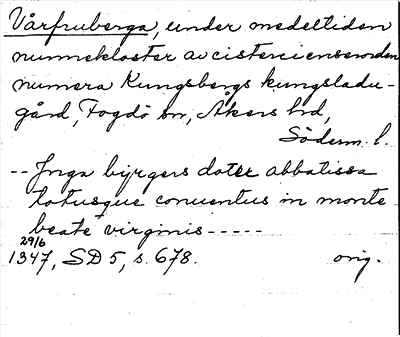 Vårfruberga, under medeltiden
nunnekloster av cistercienserorden
numera Kungsbergs kungsladu-
gård, Fogdö sn, Åkers hd,
Söderm. l.
-- Jnga byrgers doter abbatissa
totusque conuentus in monte
beate virginis -----
29/6
1347, SD 5, s. 678. orig.